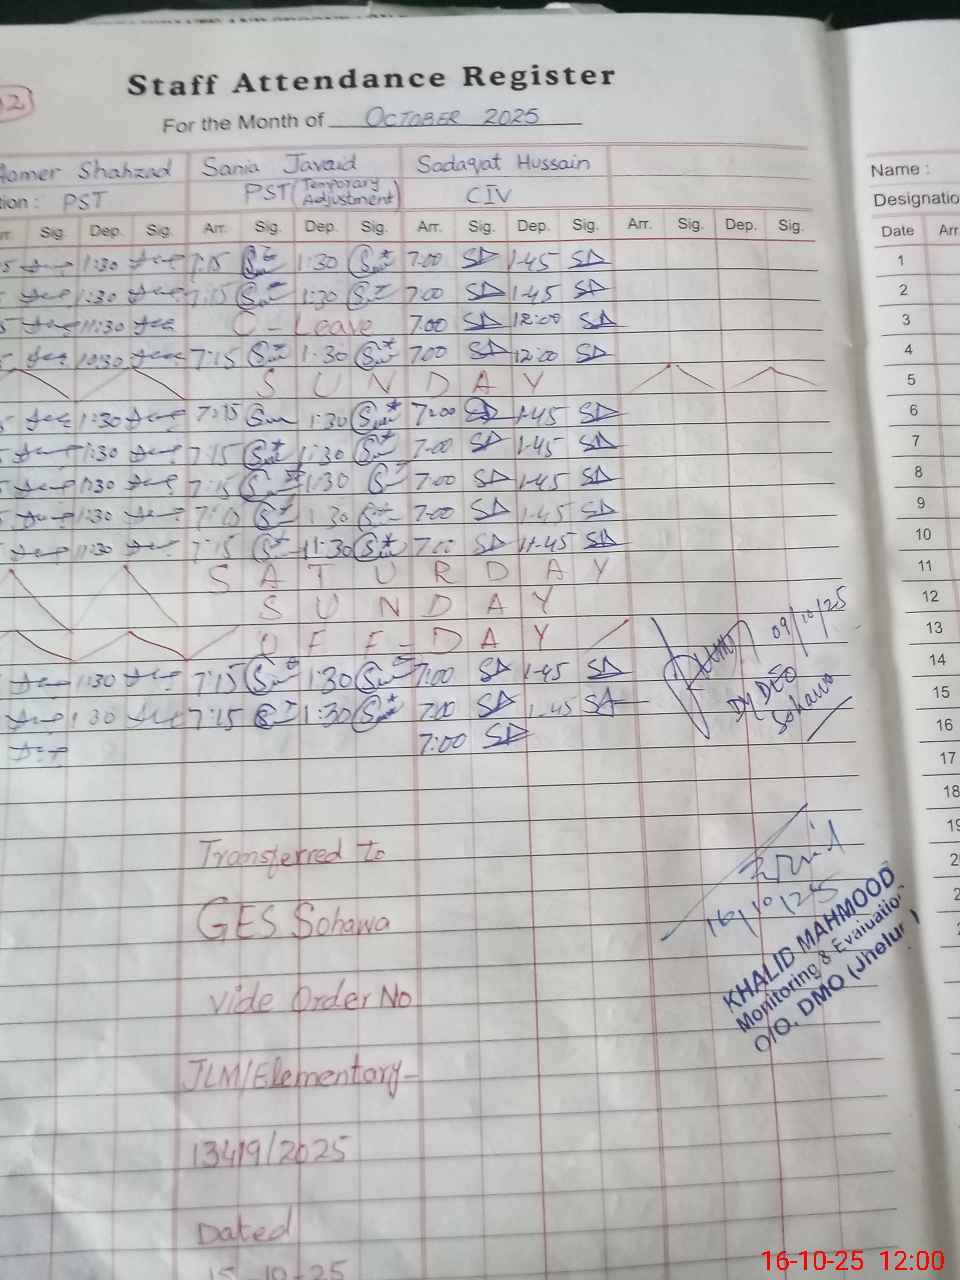 Staff Attendance Register
For the Month of OCTOBER 2025
Shahzad Sania Javaid Sadaqat Hussain
tion : PST PST (Temporary Adjustment) CIV
Name :
Designatio
rr. Sig. Dep. Sig. Arr. Sig. Dep. Sig. Arr. Sig. Dep. Sig. Arr. Sig. Dep. Sig.
Date Arr
5 1:30 7:15 1:30 7:00 SA 1-45 SA 1
1:30 7:15 1:30 7:00 SA 1-45 SA 2
11:30 C-Leave 7:00 SA 12:00 SA 3
10:30 7:15 1:30 7:00 SA 12:00 SA 4
SUNDAY 5
1:30 7:15 1:30 7:00 SA 1-45 SA 6
1:30 7:15 1:30 7:00 SA 1-45 SA 7
1:30 7:15 1:30 7:00 SA 1-45 SA 8
1:30 7:15 1:30 7:00 SA 1-45 SA 9
11:30 7:15 11:30 7:00 SA 11-45 SA 10
SATURDAY 11
SUNDAY 12
OFF-DAY 13
1:30 7:15 1:30 7:00 SA 1-45 SA 14
1:30 7:15 1:30 7:00 SA 1-45 SA 15
7:00 SA 16
17
18
09/10/25
Dy DEO
Sohawa
Transferred to
GES Sohawa
vide Order No
JLM/Elementary-
13419/2025
Dated
15-10-25
16/10/25
KHALID MAHMOOD
Monitoring & Evaluation
O/O. DMO (Jhelum)
16-10-25 12:00